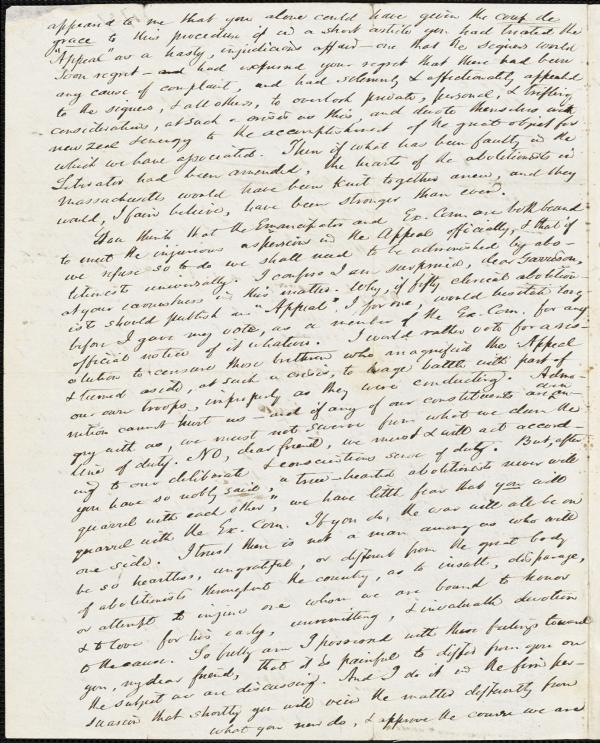 appeared to me that you alone could have given the coup de
grace to this procedure if in a short article you had treated the
"Appeal" as a hasty, injudicious affair – one that the signers would
soon regret – and had expressed your regret that there had been
any cause of complaint, and had solemnly & affectionately appealed
to the signers, & all others, to overlook private, personal, & trifling
considerations, at such a crisis as this, and devote themselves with
new zeal & energy to the accomplishment of the great object for
which we have associated. Then if what has been faulty in the
Liberator had been amended, the hearts of the abolitionists in
Massachusetts would have been knit together anew, and they
would, I fain believe, have been stronger than ever.
You think that the Emancipator and Ex. Com. are both bound
to meet the injurious aspersions in the Appeal officially, & that if
we refuse so to do we shall need to be admonished by abo-
litionists universally. I confess I am surprised, dear Garrison,
at your earnestness in this matter. Why, if fifty clerical abolition-
ists should publish an "Appeal", I for one, would hesitate long
before I gave my vote, as a member of the Ex. Com. for any
official notice of it whatever. I would rather vote for a res-
olution to censure those brethren who magnified the Appeal
& turned aside, at such a crisis, to wage battle with part of
our own troops, improperly as they were conducting. Admo-
nition cannot hurt us – and if any of our constituents are an-
gry with us, we must not swerve from what we deem the
line of duty. No, dear friend, we must & will act accord-
ing to our deliberate & conscientious sense of duty. But, after
you have so nobly said, "a true-hearted abolitionist never will
quarrel with each other," we have little fear that you will
quarrel with the Ex. Com. If you do, the war will all be on
one side. I trust there is not a man among us who will
be so heartless, ungrateful, or different from the great body
of abolitionists throughout the country, as to insult, disparage,
or attempt to injure one whom we are bound to honor
& to love for his early, unremitting, & invaluable devotion
to the cause. So fully am I possessed with these feelings toward
you, my dear friend, that it is painful to differ from you on
the subject we are discussing. And I do it in the firm per-
suasion that shortly you will view the matter differently from
what you now do, & approve the course we are